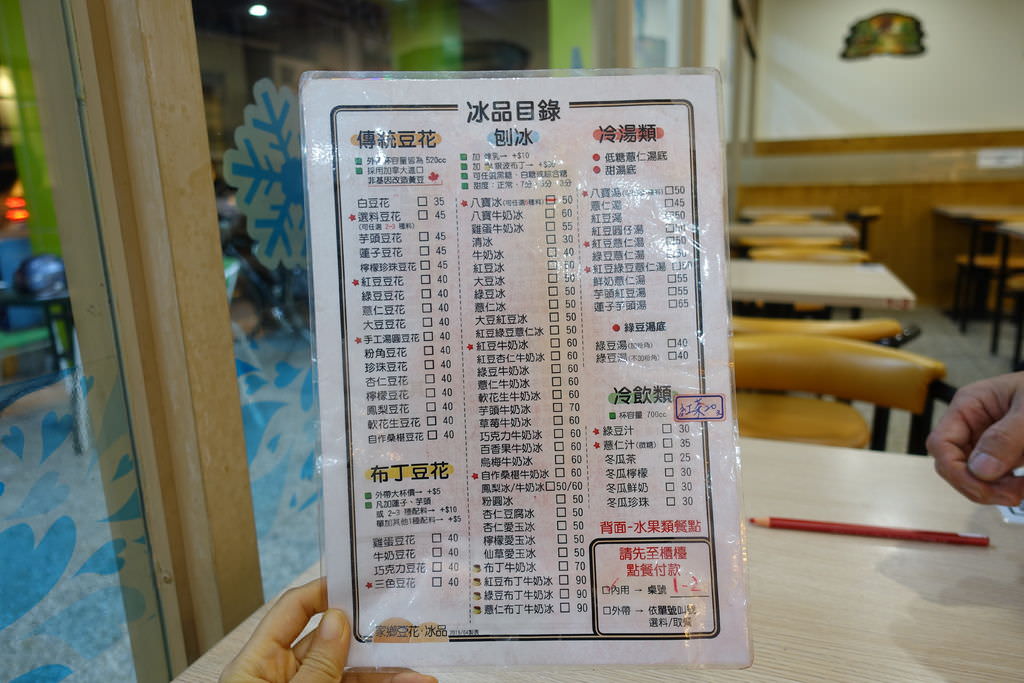 冰品目錄
傳統豆花
外帶杯容量皆為 520cc
採用加拿大進口
非基因改造黃豆
白豆花 □ 35
★選料豆花 □ 45
(可任選 2-3 種料)
芋頭豆花 □ 45
蓮子豆花 □ 45
檸檬珍珠豆花 □ 45
★紅豆豆花 □ 40
綠豆豆花 □ 40
薏仁豆花 □ 40
大豆豆花 □ 40
★手工湯圓豆花 □ 40
粉角豆花 □ 40
珍珠豆花 □ 40
杏仁豆花 □ 40
檸檬豆花 □ 40
鳳梨豆花 □ 40
軟花生豆花 □ 40
自作桑椹豆花 □ 40
布丁豆花
外帶大杯價→ +$5
凡加蓮子、芋頭
或 2-3 種配料→ +$10
單加其他1種配料→ +$5
雞蛋豆花 □ 40
牛奶豆花 □ 40
巧克力豆花 □ 40
★三色豆花 □ 40
家鄉豆花·冰品
刨冰
加 煉乳→ +$10
可任選黑糖、白糖或綜合糖
甜度：正常、7分
★八寶冰(可任選5種料) □ 50
八寶牛奶冰 □ 60
雞蛋牛奶冰 □ 55
清冰 □ 30
牛奶冰 □ 40
紅豆冰 □ 50
大豆冰 □ 50
綠豆冰 □ 50
薏仁冰 □ 50
大豆紅豆冰 □ 50
紅豆綠豆薏仁冰 □ 50
★紅豆牛奶冰 □ 60
紅豆杏仁牛奶冰 □ 60
綠豆牛奶冰 □ 60
薏仁牛奶冰 □ 60
軟花生牛奶冰 □ 60
芋頭牛奶冰 □ 70
草莓牛奶冰 □ 60
巧克力牛奶冰 □ 60
百香果牛奶冰 □ 60
烏梅牛奶冰 □ 60
★自作桑椹牛奶冰 □ 60
鳳梨冰/牛奶冰 □ 50/60
粉圓冰 □ 50
杏仁豆腐冰 □ 50
杏仁愛玉冰 □ 50
檸檬愛玉冰 □ 50
仙草愛玉冰 □ 50
布丁牛奶冰 □ 70
紅豆布丁牛奶冰 □ 90
綠豆布丁牛奶冰 □ 90
薏仁布丁牛奶冰 □ 90
冷湯類
● 低糖薏仁湯底
● 甜湯底
★八寶湯 □50
薏仁湯 □45
紅豆湯 □50
紅豆圓仔湯 □50
★紅豆薏仁湯 □50
綠豆薏仁湯 □50
★紅豆綠豆薏仁湯
鮮奶薏仁湯 □55
芋頭紅豆湯 □55
蓮子芋頭湯 □65
● 綠豆湯底
綠豆湯(加粉角) □40
綠豆湯(不加粉角) □40
冷飲類
杯容量 700cc
紅茶20元
★綠豆汁 □ 30
★薏仁汁(微糖) □ 35
冬瓜茶 □ 25
冬瓜檸檬 □ 30
冬瓜鮮奶 □ 30
冬瓜珍珠 □ 30
背面-水果類餐點
請先至櫃檯
點餐付款
□內用 → 桌號 1-2
□外帶 → 依單號叫號
選料/取餐